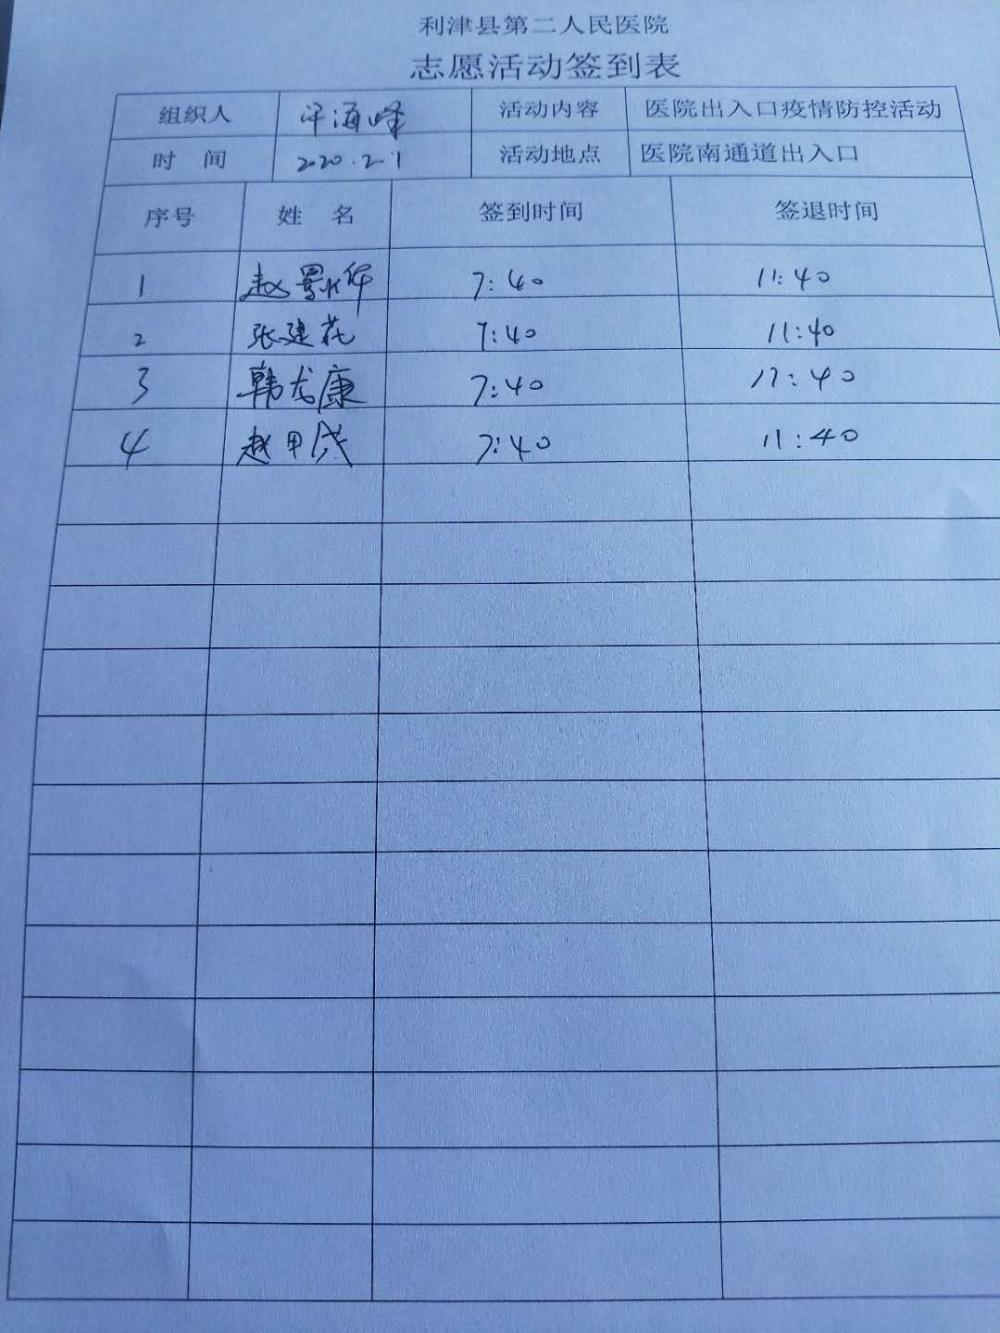 利津县第二人民医院
志愿活动签到表
组织人 海峰 活动内容 医院出入口疫情防控活动
时 间 2020.2.1 活动地点 医院南通道出入口
序号 姓 名 签到时间 签退时间
1 赵景华 7:40 11:40
2 张建花 7:40 11:40
3 韩龙康 7:40 11:40
4 赵甲成 7:40 11:40